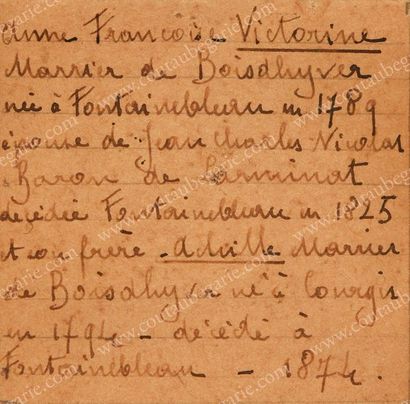 Anne Françoise Victorine
Marrier de Boisdhyver
née à Fontainebleau en 1789
épouse de Jean Charles Nicolas
Baron de Larminat
décédée Fontainebleau en 1825
et son frère - Adville Marrier
de Boisdhyver né à Courgis
en 1794 - décédé à
Fontainebleau - 1874.